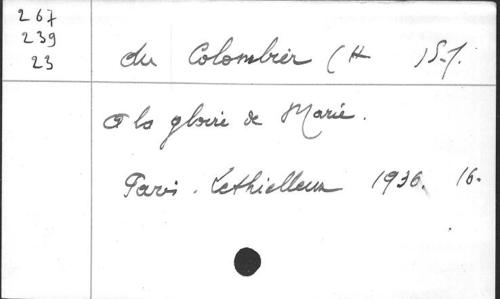 267
239
23
du Colombier (H )S.J.
A la gloire de Marie.
Paris. Lethielleux 1936. 16.